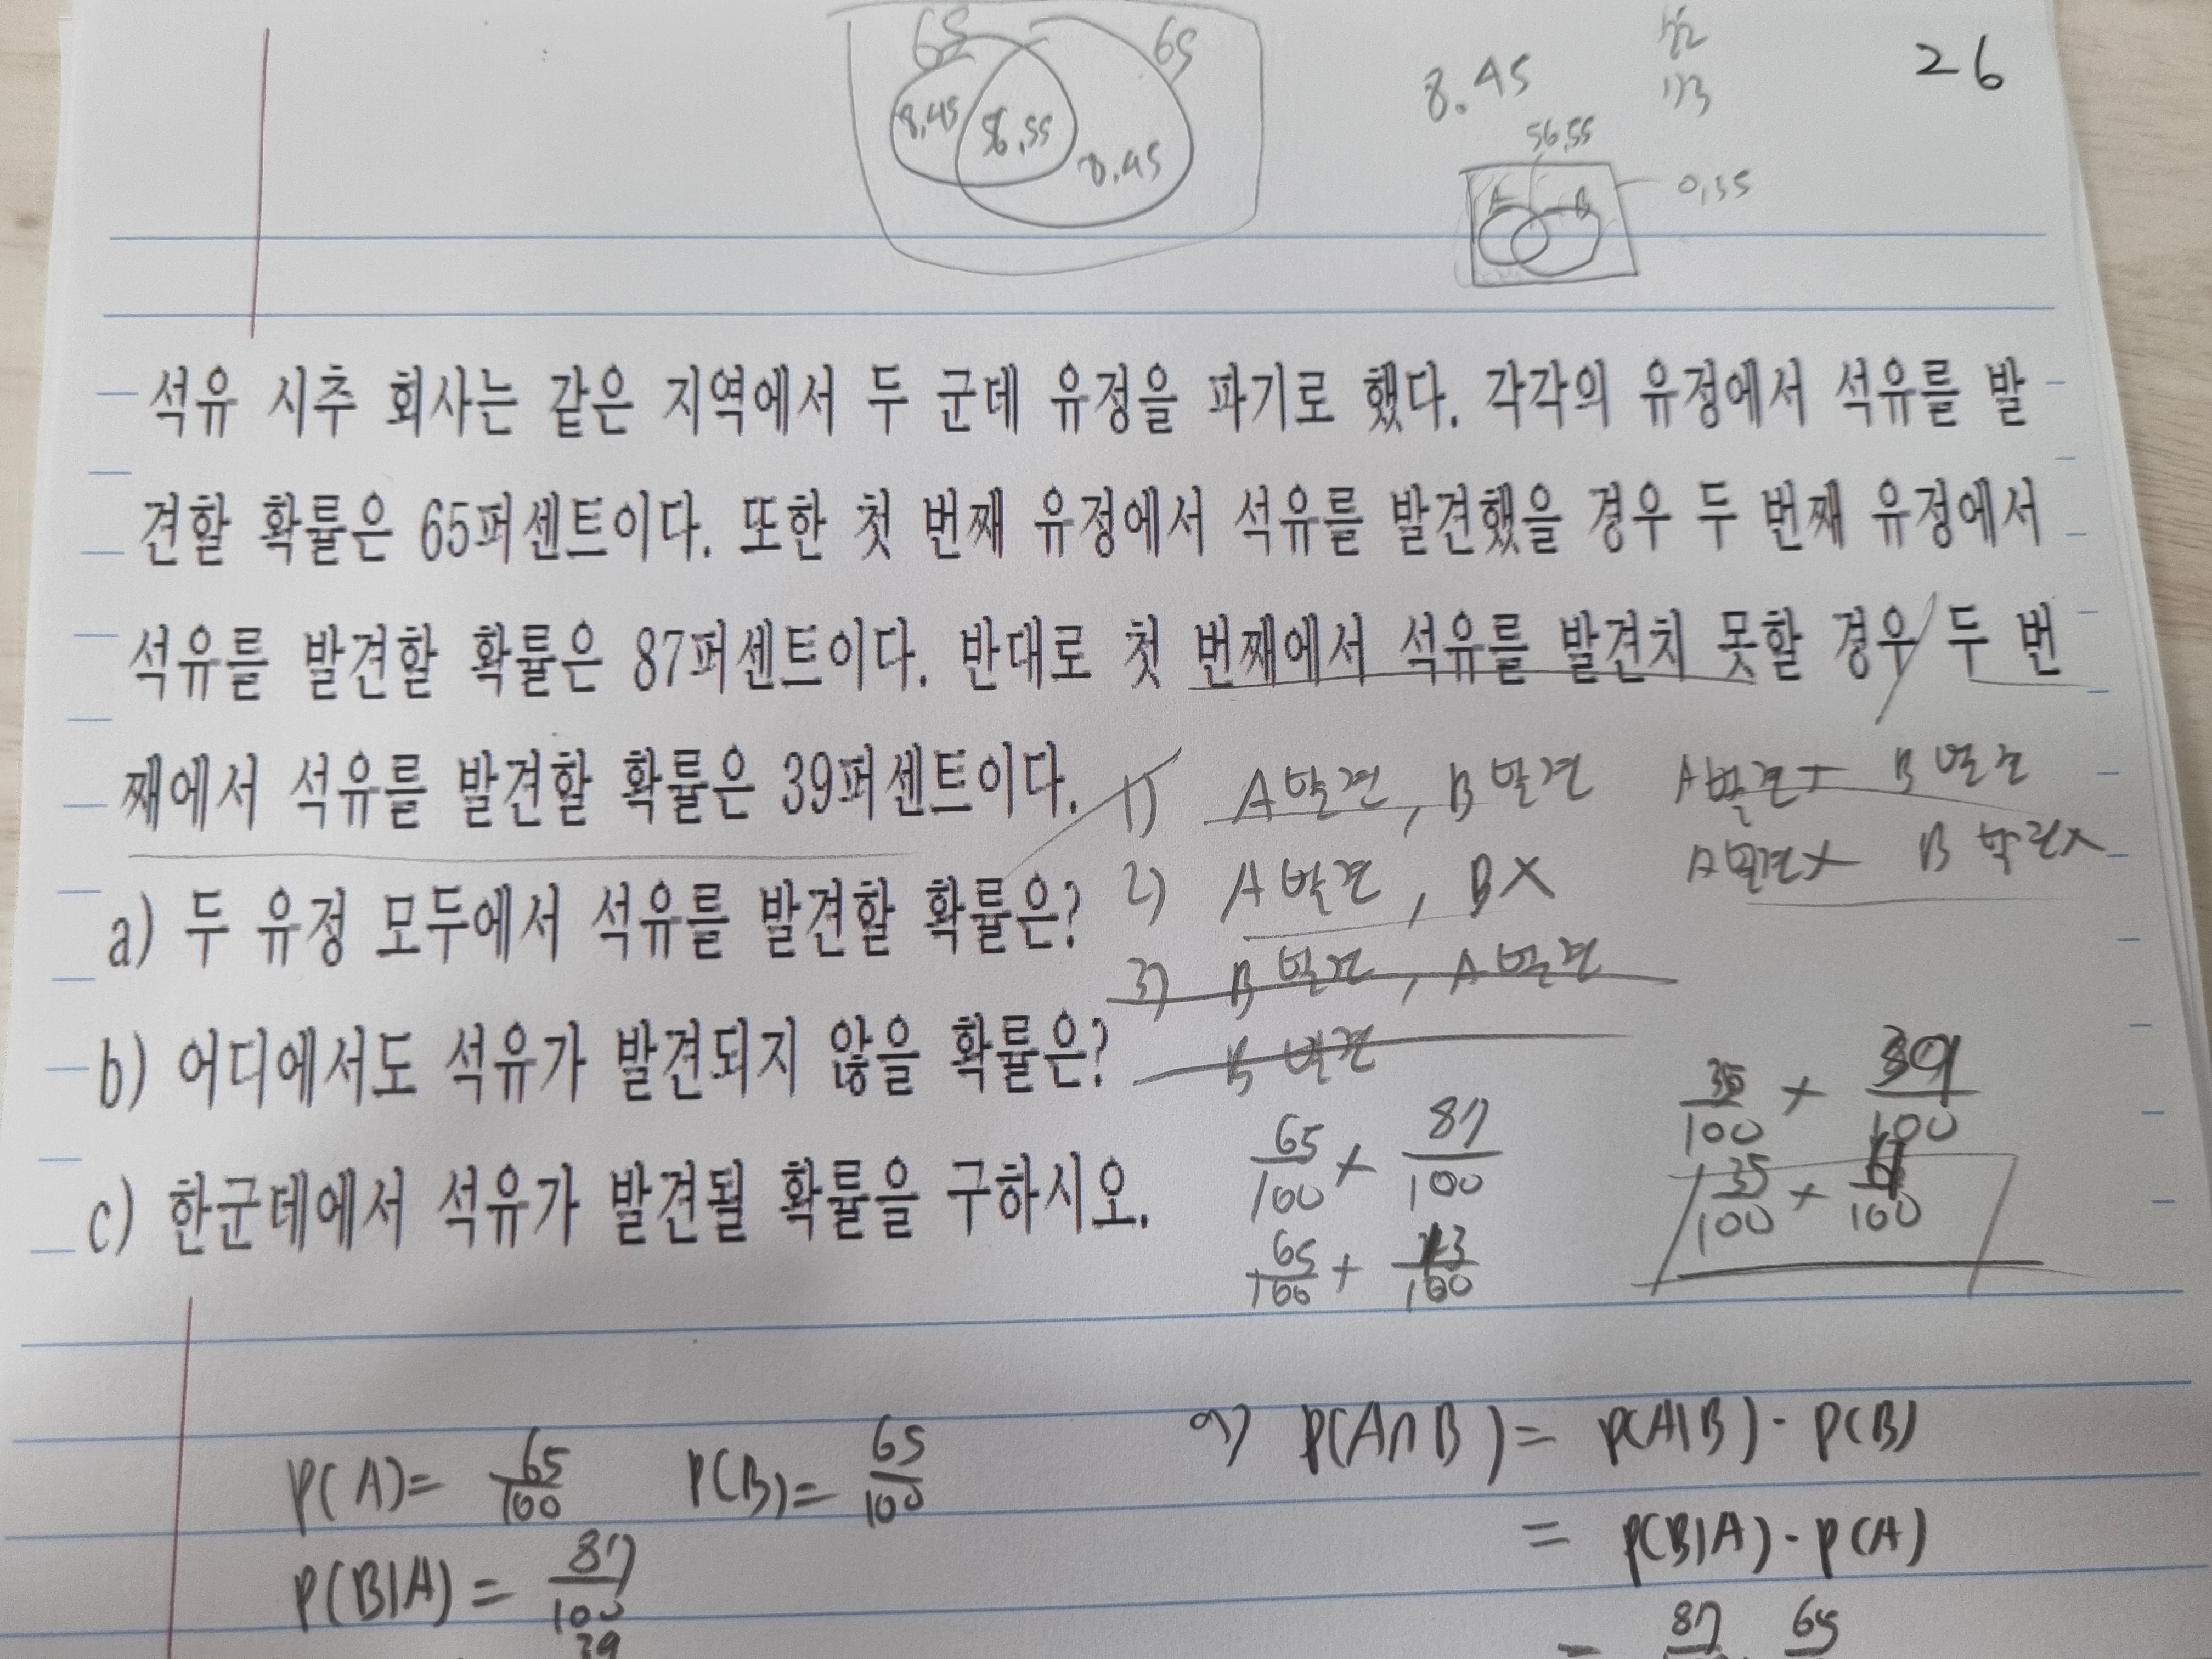 65 65
8.45 56.55 8.45
8.45
26
56.55
A B
0.35
석유 시추 회사는 같은 지역에서 두 군데 유정을 파기로 했다. 각각의 유정에서 석유를 발
견할 확률은 65퍼센트이다. 또한 첫 번째 유정에서 석유를 발견했을 경우 두 번째 유정에서
석유를 발견할 확률은 87퍼센트이다. 반대로 첫 번째에서 석유를 발견치 못할 경우 두 번
째에서 석유를 발견할 확률은 39퍼센트이다.
1) A발견, B발견 A발견X B발견
2) A발견, BX A발견X B발견X
a) 두 유정 모두에서 석유를 발견할 확률은?
3) B발견, A발견
b) 어디에서도 석유가 발견되지 않을 확률은?
B발견
c) 한군데에서 석유가 발견될 확률을 구하시오.
65/100 × 87/100 35/100 × 39/100
65/100 × 13/100 35/100 × 61/100
P(A)= 65/100 P(B)= 65/100 a) P(A∩B)= P(A|B)·P(B)
P(B|A)= 87/100 = P(B|A)·P(A)
39 = 87 65